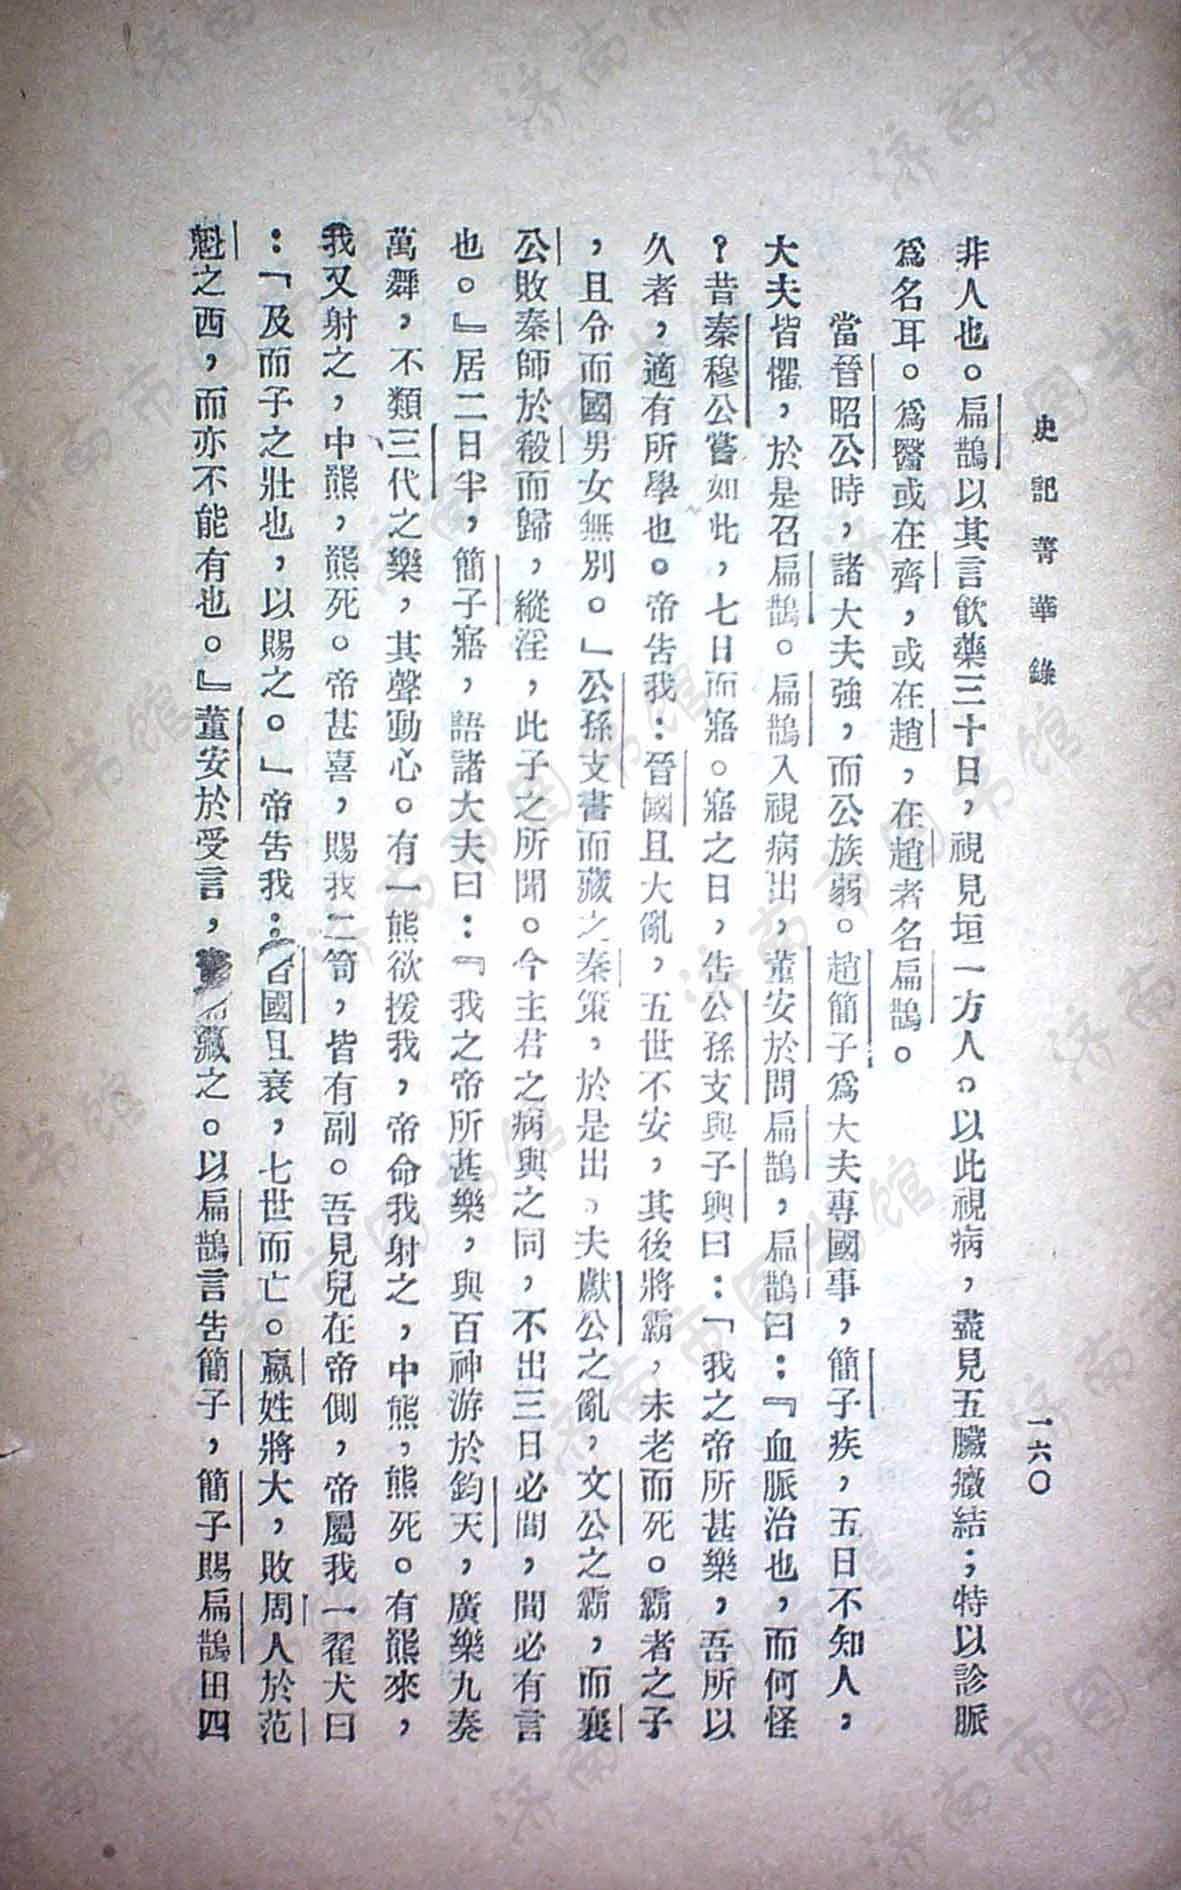 史記菁華錄
一六〇
非人也。扁鵲以其言飲藥三十日，視見垣一方人。以此視病，盡見五臟癥結；特以診脈
爲名耳。爲醫或在齊，或在趙，在趙者名扁鵲。
當晉昭公時，諸大夫強，而公族弱。趙簡子爲大夫專國事，簡子疾，五日不知人，
大夫皆懼，於是召扁鵲。扁鵲入視病出，董安於問扁鵲，扁鵲曰：『血脈治也，而何怪
？昔秦穆公嘗如此，七日而寤。寤之日，告公孫支與子輿曰：「我之帝所甚樂，吾所以
久者，適有所學也。帝告我：晉國且大亂，五世不安，其後將霸，未老而死。霸者之子
，且令而國男女無別。」公孫支書而藏之秦策，於是出。夫獻公之亂，文公之霸，而襄
公敗秦師於殽而歸，縱淫，此子之所聞。今主君之病與之同，不出三日必間，間必有言
也。』居二日半，簡子寤，語諸大夫曰：『我之帝所甚樂，與百神游於鈞天，廣樂九奏
萬舞，不類三代之樂，其聲動心。有一熊欲援我，帝命我射之，中熊，熊死。有羆來，
我又射之，中羆，羆死。帝甚喜，賜我二笥，皆有副。吾見兒在帝側，帝屬我一翟犬曰
：「及而子之壯也，以賜之。」帝告我：國且衰，七世而亡。嬴姓將大，敗周人於范
魁之西，而亦不能有也。』董安於受言，藏之。以扁鵲言告簡子，簡子賜扁鵲田四
济南市图书馆